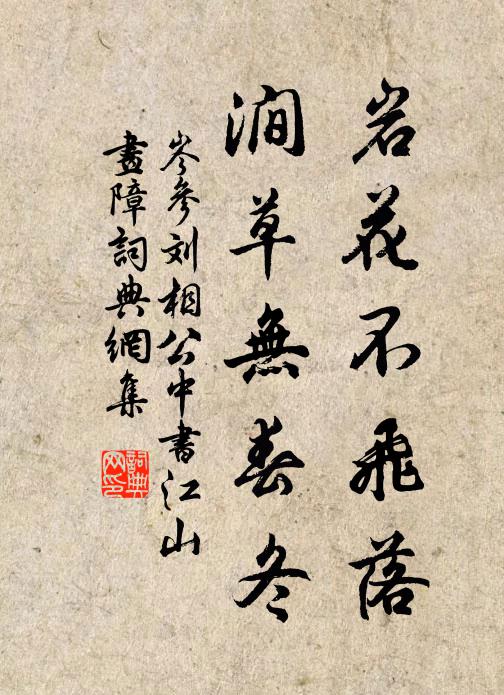 岩花不飛落
澗草無春冬
岑參刘相公中書江山
畫障詞典網集
詞典网印